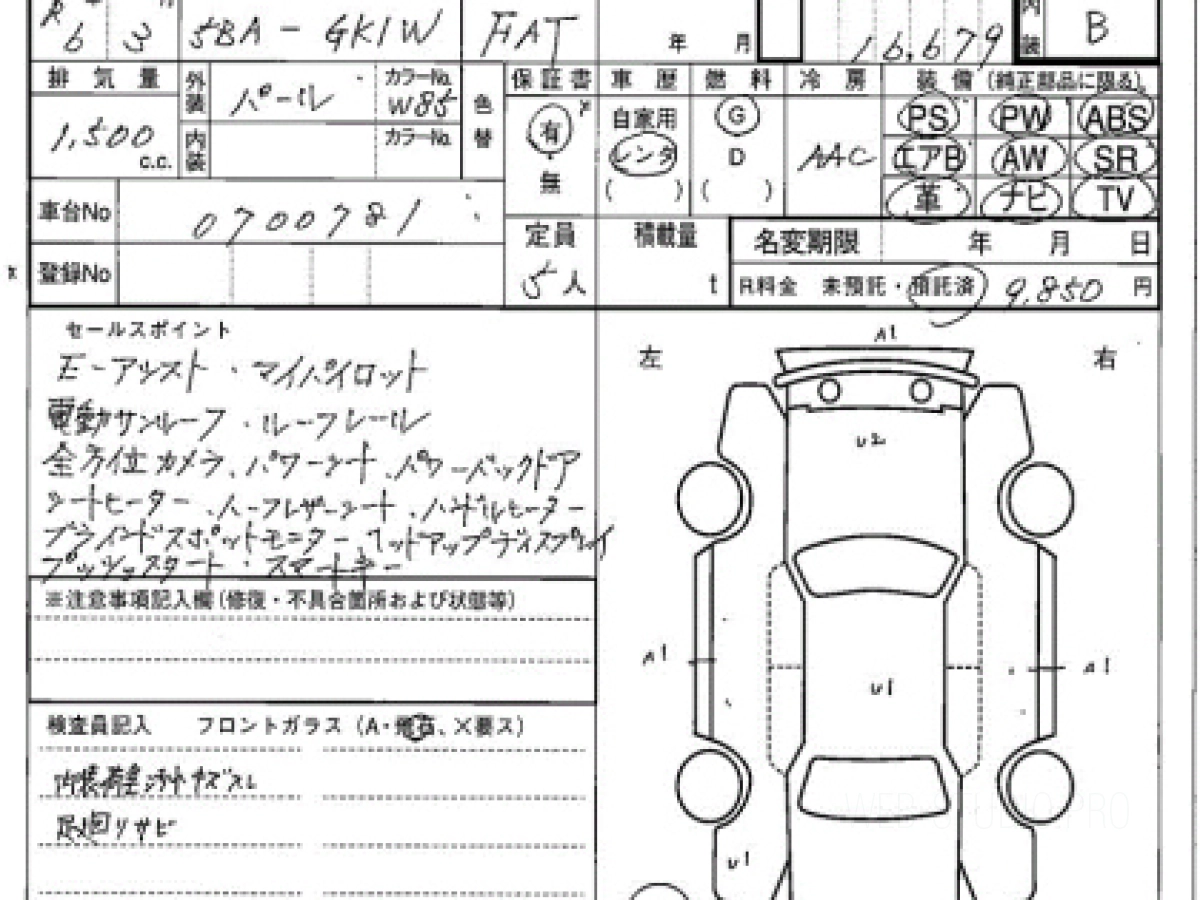 R 6 3 5BA-GK1W FAT 年 月 16,679 内装 B
排気量 外装 パール カラーNo. W85 色替 保証書 車歴 燃料 冷房 装備 (純正部品に限る)
1,500 c.c. 内装 カラーNo. 有・無 自家用 レンタ ( ) G D ( ) AAC PS PW ABS
エアB AW SR
革 ナビ TV
車台No 0700781
定員 積載量 名変期限 年 月 日
登録No 5人 t R料金 未預託・預託済 9,850 円
セールスポイント
E-アシスト・マイパイロット
電動サンルーフ・ルーフレール
全方位カメラ、パワーシート、パワーバックドア
シートヒーター、ハーフレザーシート、ハンドルヒーター
ブラインドスポットモニター ヘッドアップディスプレイ
プッシュスタート・スマートキー
※注意事項記入欄(修復・不具合箇所および状態等)
検査員記入 フロントガラス (A・飛石、X要ス)
内装荷室汚れキズスレ
足廻りサビ
左 A1 右
U2
A1 A1
U1
U1